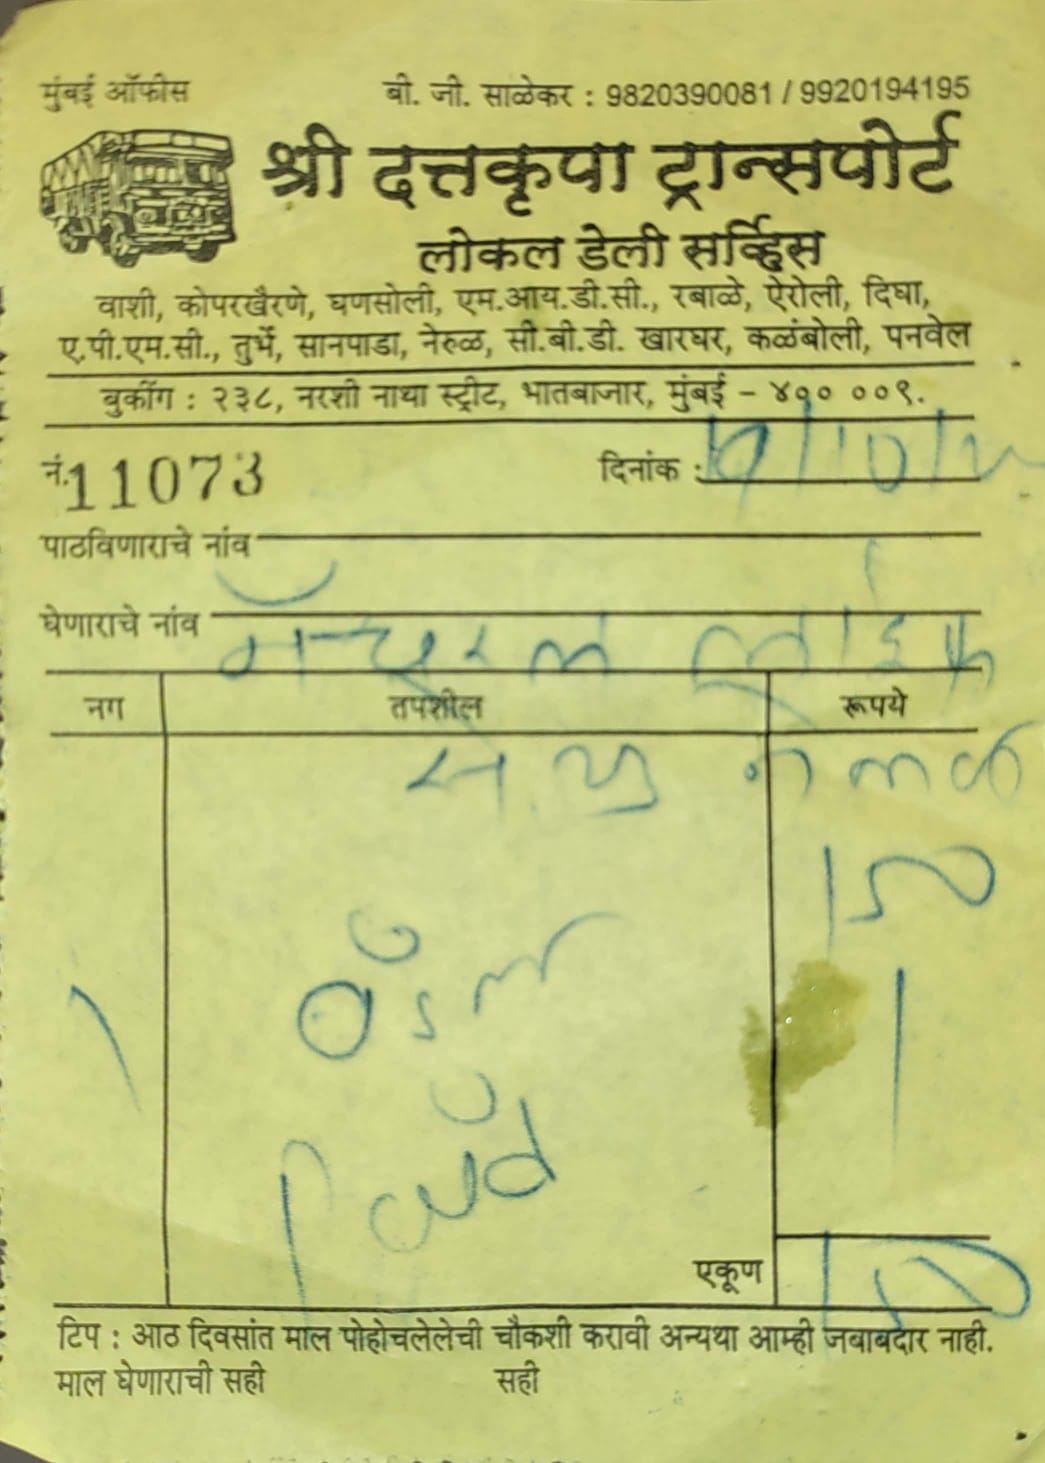 मुंबई ऑफीस
बी. जी. साळेकर : 9820390081 / 9920194195
श्री दत्तकृपा ट्रान्सपोर्ट
लोकल डेली सर्व्हिस
वाशी, कोपरखैरणे, घणसोली, एम.आय.डी.सी., रबाळे, ऐरोली, दिघा,
ए.पी.एम.सी., तुर्भे, सानपाडा, नेरुळ, सी.बी.डी. खारघर, कळंबोली, पनवेल
बुकींग : २३८, नरशी नाथा स्ट्रीट, भातबाजार, मुंबई - ४०० ००९.
नं. 11073 दिनांक :
पाठविणाराचे नांव
घेणाराचे नांव नॅचुरल लाईफ
नग तपशील रूपये
150
1 बॅंडल
Paid
एकूण 150
टिप : आठ दिवसांत माल पोहोचलेलेची चौकशी करावी अन्यथा आम्ही जबाबदार नाही.
माल घेणाराची सही सही